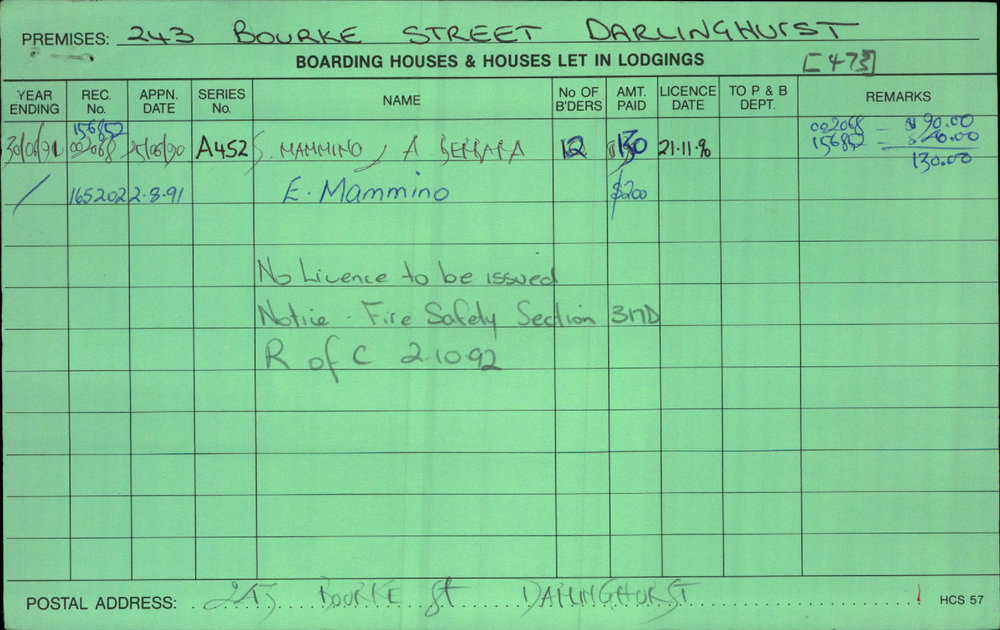 PREMISES: 243 BOURKE STREET DARLINGHURST
BOARDING HOUSES & HOUSES LET IN LODGINGS [473]
YEAR ENDING REC. No. APPN. DATE SERIES No. NAME No OF B'DERS AMT. PAID LICENCE DATE TO P & B DEPT. REMARKS
156852 002068 - $90.00
30/06/91 002068 25/06/90 A452 S. MAMMINO, A 12 $130 21·11·90 156852 - $40.00
130.00
/ 165202 2-8-91 E. Mammino $200
No Licence to be issued
Notice - Fire Safety Section 317D
R of C 2·10·92
POSTAL ADDRESS: 243 BOURKE St DARLINGHURST HCS 57